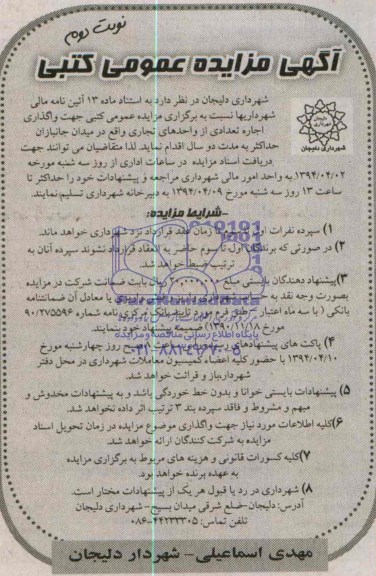 نوبت دوم
آگهی مزایده عمومی کتبی
شهرداری دلیجان در نظر دارد به استناد ماده ۱۳ آئین نامه مالی
شهرداریها نسبت به برگزاری مزایده عمومی کتبی جهت واگذاری
اجاره تعدادی از واحدهای تجاری واقع در میدان جانبازان
حداکثر به مدت دو سال اقدام نماید. لذا متقاضیان می توانند جهت
دریافت اسناد مزایده در ساعات اداری از روز سه شنبه مورخه
۱۳۹۴/۰۴/۰۲ به واحد امور مالی شهرداری مراجعه و پیشنهادات خود را حداکثر تا
ساعت ۱۳ روز سه شنبه مورخ ۱۳۹۴/۰۴/۰۹ به دبیرخانه شهرداری تسلیم نمایند.
شهرداری دلیجان
-شرایط مزایده:
۱) سپرده نفرات اول تا سوم تا زمان عقد قرارداد نزد شهرداری خواهد ماند.
۲) در صورتی که برندگان اول تا سوم حاضر به انعقاد قرارداد نشوند سپرده آنان به
ترتیب ضبط خواهد شد.
۳) پیشنهاد دهندگان بایستی مبلغ ریال بابت ضمانت شرکت در مزایده
بصورت وجه نقد به معادل آن ضمانتنامه
بانکی (با سه ماه اعتبار طبق فرم مورد تایید بانک مرکزی نامه شماره ۹۰/۲۷۵۵۹۶
مورخ ۱۳۹۰/۱۱/۱۸) ضمیمه پیشنهاد خود نمایند.
۴) پاکت های پیشنهادهای صبح روز چهارشنبه مورخ
۱۳۹۴/۰۴/۱۰ با حضور کلیه اعضاء کمیسیون معاملات شهرداری در محل دفتر
شهردار،باز و قرائت خواهد شد.
۵) پیشنهادات بایستی خوانا و بدون خط خوردگی باشد و به پیشنهادات مخدوش و
مبهم و مشروط و فاقد سپرده بند ۳ ترتیب اثر داده نخواهد شد.
۶) کلیه اطلاعات مورد نیاز جهت واگذاری موضوع مزایده در زمان تحویل اسناد
مزایده به شرکت کنندگان ارائه خواهد شد.
۷) کلیه کسورات قانونی و هزینه های مربوط به برگزاری مزایده
به عهده برنده خواهد بود.
۸) شهرداری در رد یا قبول هر یک از پیشنهادات مختار است.
آدرس: دلیجان-ضلع شرقی میدان بسیج-شهرداری دلیجان
تلفن تماس: ۴۴۲۳۳۳۰۵-۰۸۶
مهدی اسماعیلی- شهردار دلیجان
پایگاه اطلاع رسانی مناقصه و مزایده